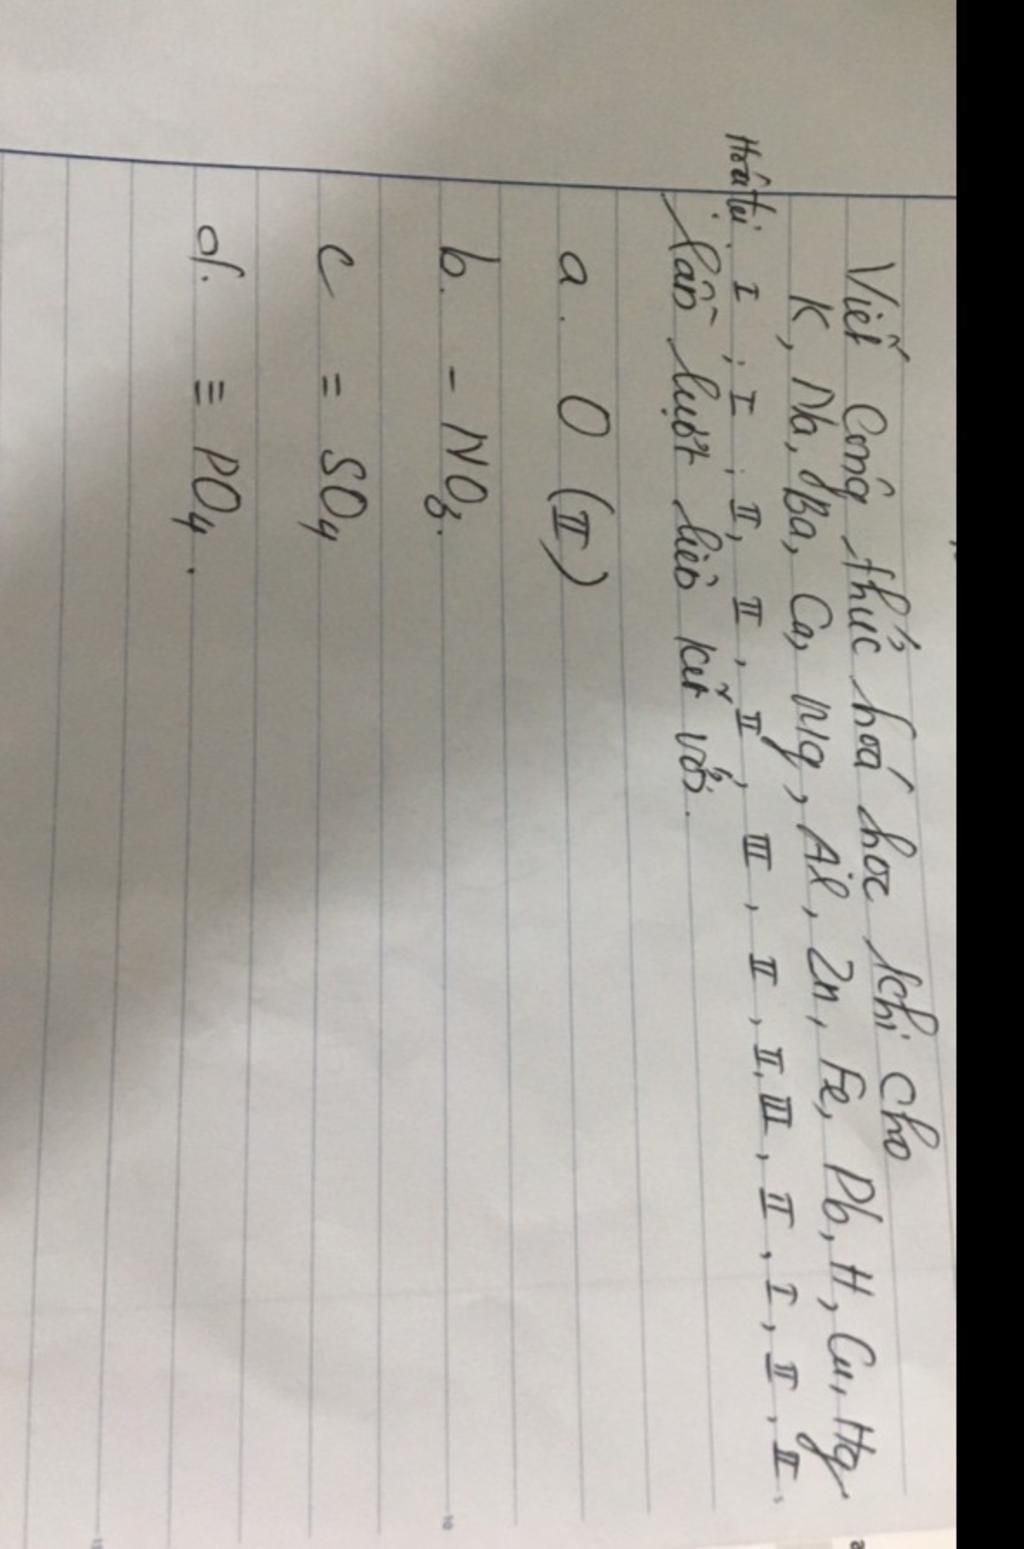 Viết Công thức hoá học khi cho
K, Na, Ba, Ca, Mg, Al, Zn, Fe, Pb, H, Cu, Hg
Hoá trị. I, I, II, II, II, III, II, II, III, II, I, II, II.
lần lượt liên kết với.
a. O (II)
b. - NO3.
c = SO4
d. ≡ PO4.